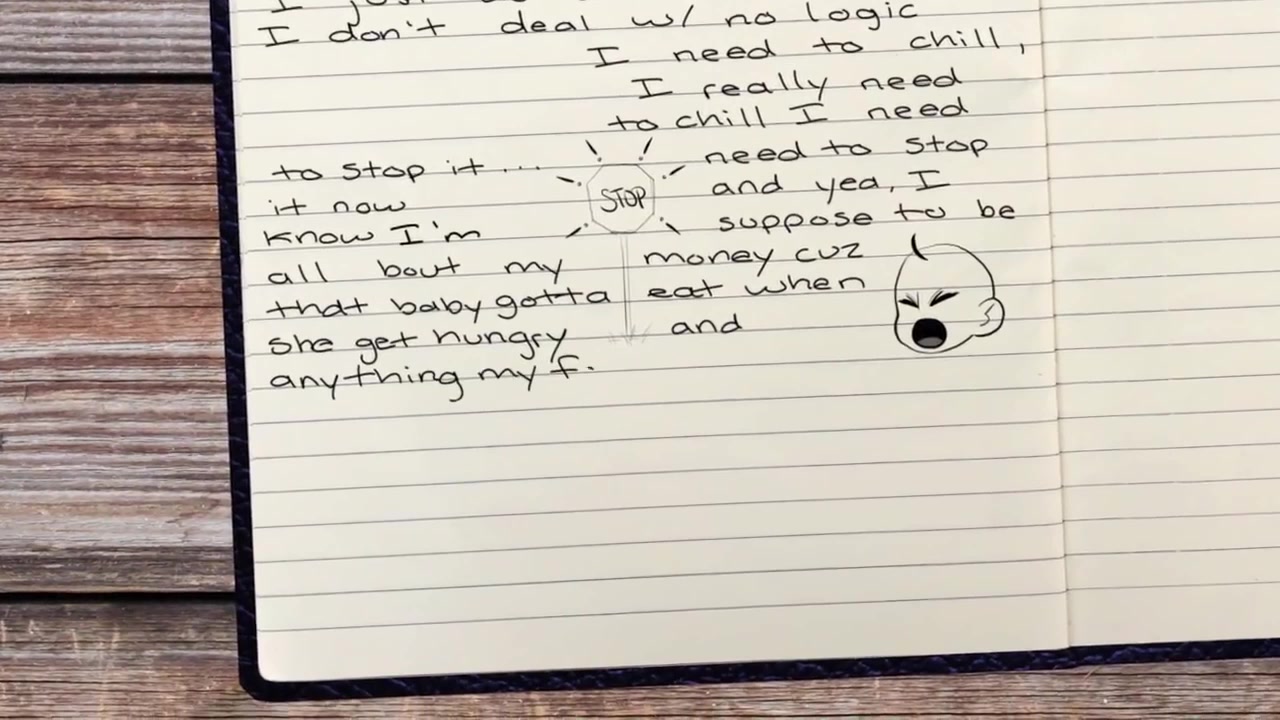 I just
I don't deal w/ no logic
I need to chill,
I really need
to chill I need
to stop it... need to stop
it now and yea, I
know I'm suppose to be
all bout my money cuz
that baby gotta eat when
she get hungry and
anything my f.
STOP